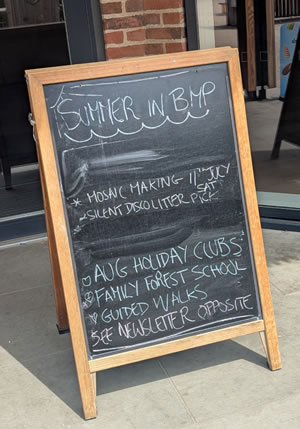 SUMMER IN BMP
* MOSAIC MAKING 11TH JULY
SAT
- SILENT DISCO LITTER PICK
AUG HOLIDAY CLUBS
FAMILY FOREST SCHOOL
GUIDED WALKS
SEE NEWSLETTER OPPOSITE